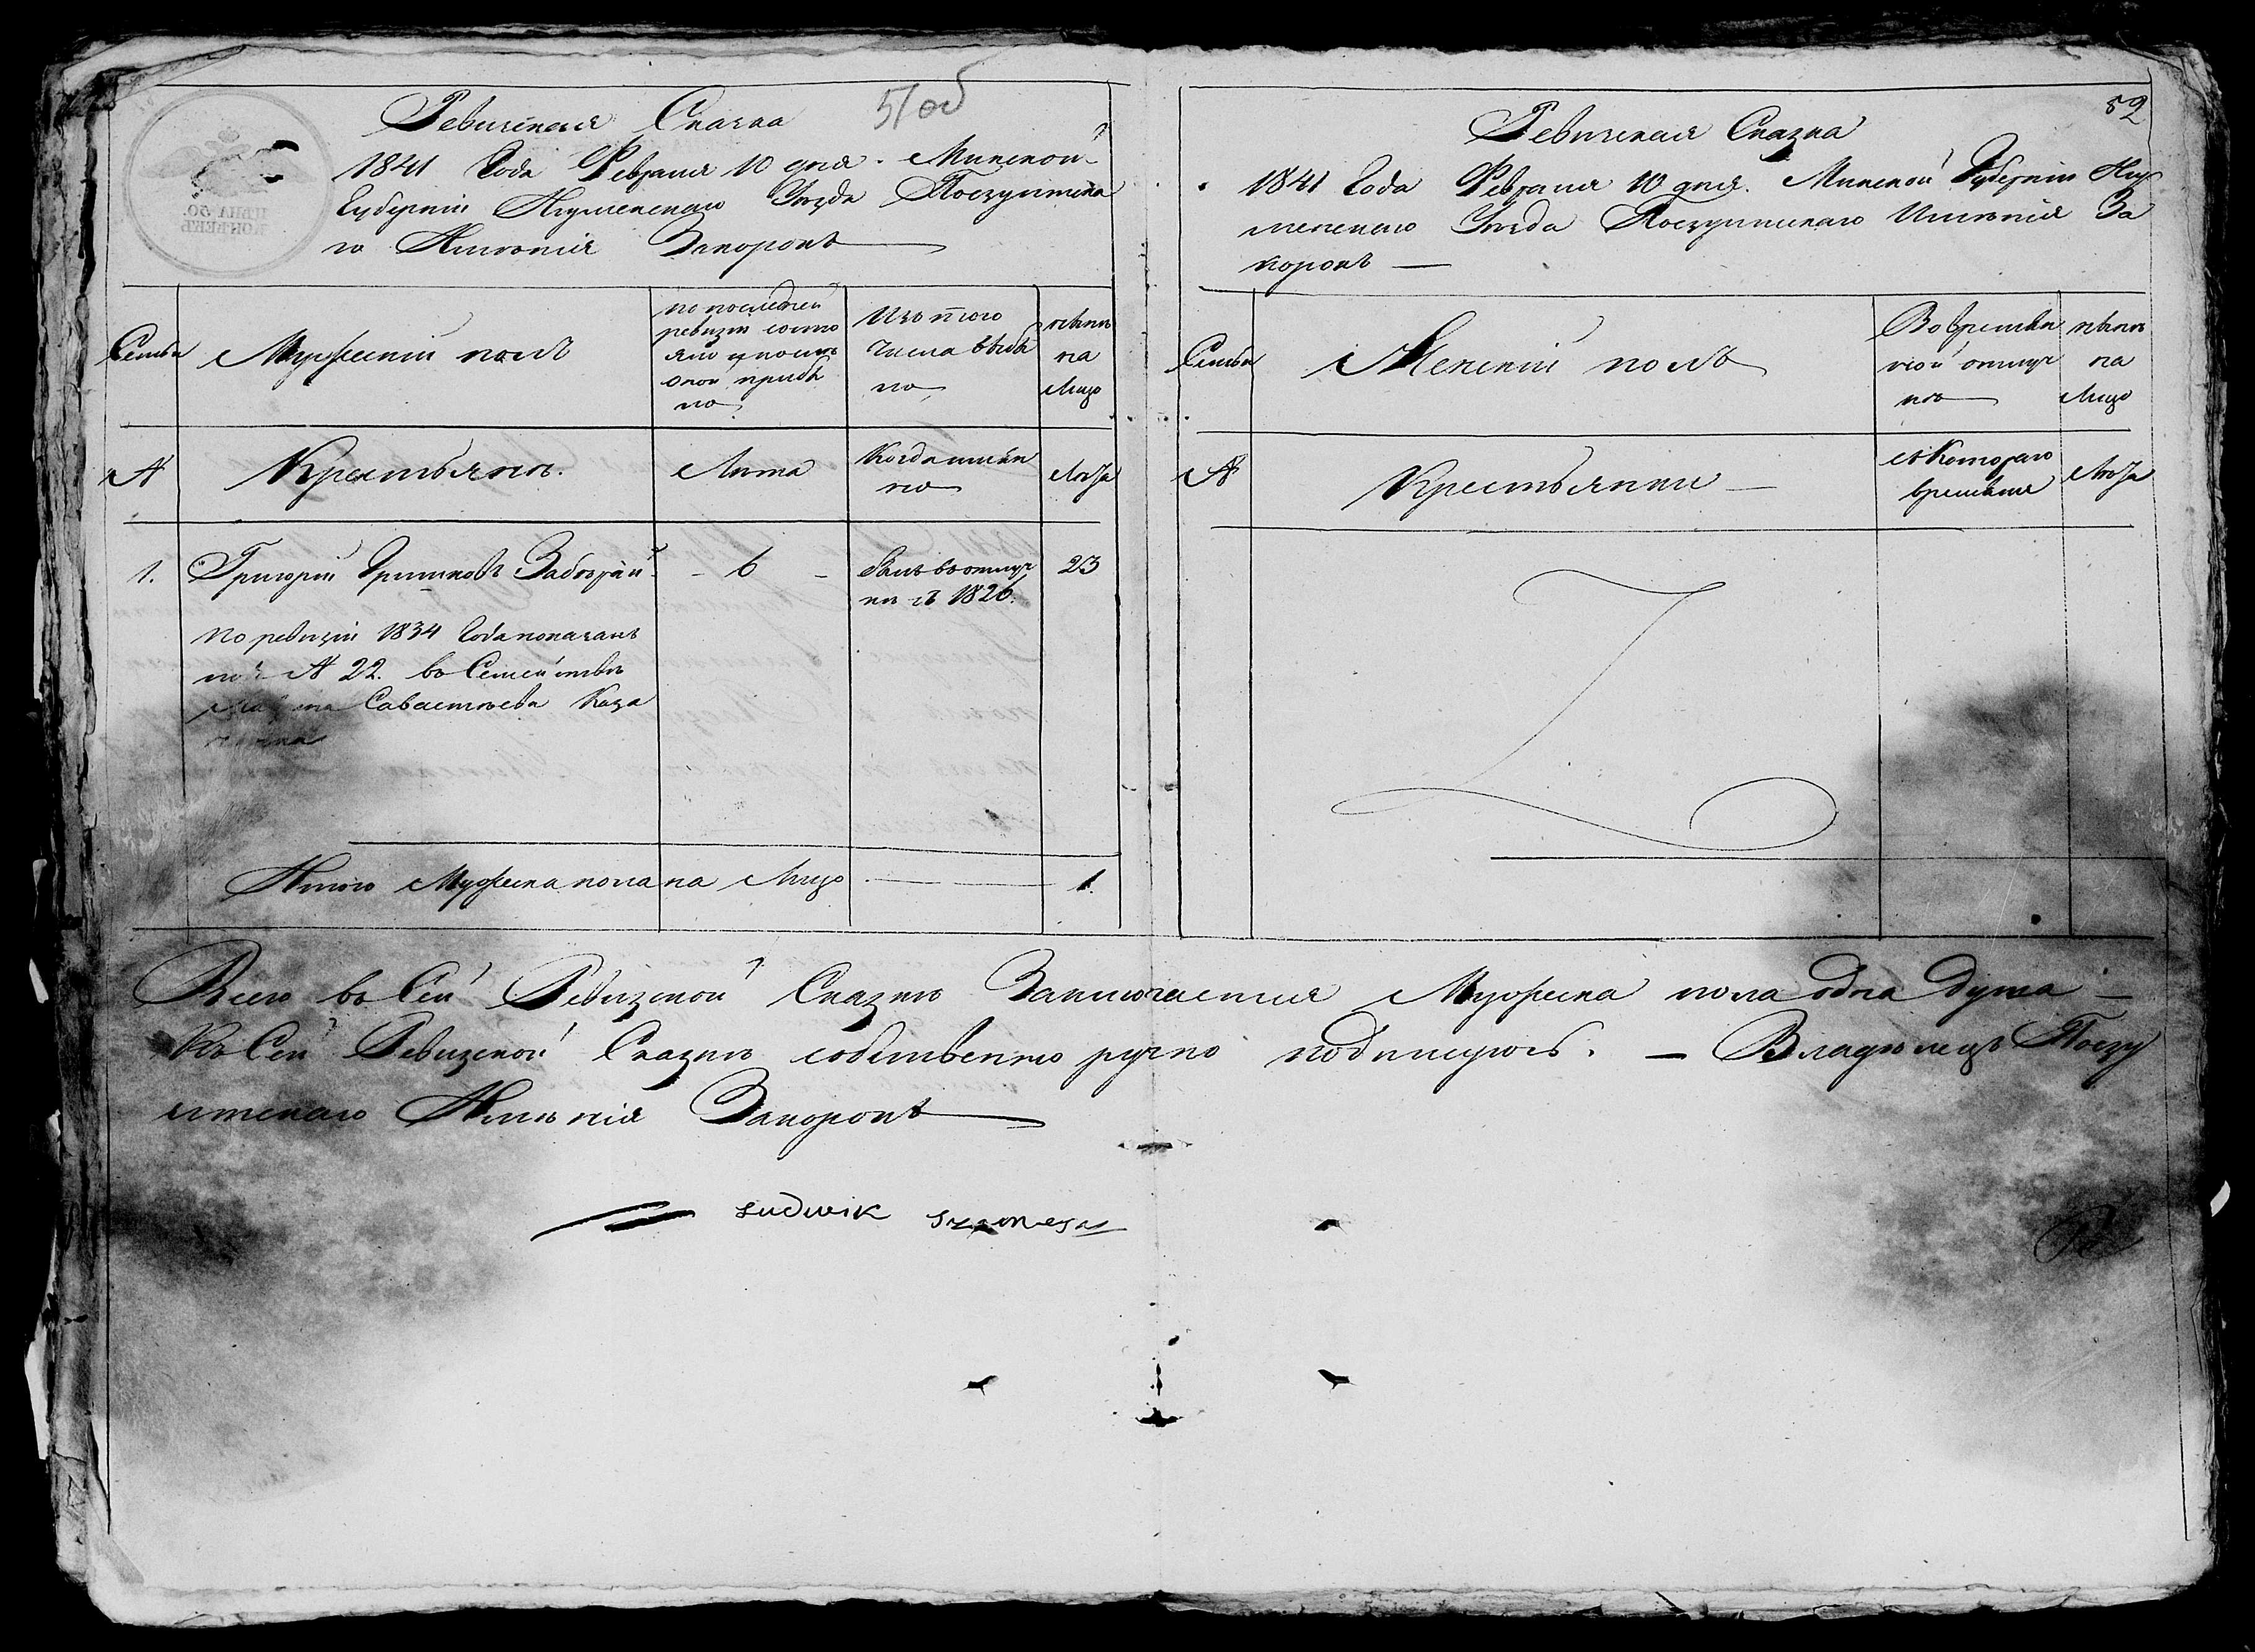 51об
Ревизская Сказка
1841 Года Февраля 10 дня. Минской
Губернии Игуменского Уезда Поезуитска
го Имения Закоронь
Семьи
Мужеский полъ
по последней
ревизии состо
яло и после
оной прибы
ло
Изъ того
числа выбы
ло
ныне
на
лицо
№
Крестьяне.
Лета
Когда имен
но
Лета
1.
Григорий Гришковъ
6
былъ въ отлуч
ке съ 1826.
23
По ревизии 1834 Года показанъ
подъ № 22. во Семействе
Савастеева Каза
Итого Мужеска пола на Лицо
1.
52
Ревизская Сказка
1841 Года Февраля 10 дня. Минской Губернии Игу
менского Уезда Поезуитскаго Имения За
коронь
Семьи
Женский полъ
Во времен
ной отлуч
ке
ныне
на
Лицо
№
Крестьянки
съ Котораго
времени
Лета
Всего во Сей Ревизской Сказке Заключается Мужеска пола одна душа
Къ Сей Ревизской Сказке собственно ручно подписуюсь. — Владелецъ Поезу
итскаго Имения Закоронь
Ludwik